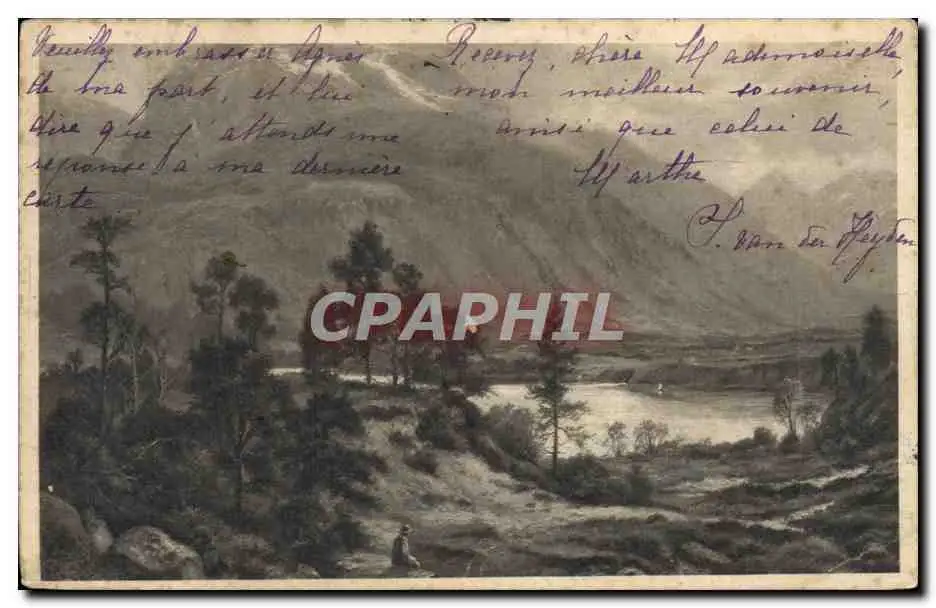 Veuillez embrasser Agnès
de ma part, et lui
dire que j'attends une
réponse à ma dernière
carte
Recevez, chère Mademoiselle,
mon meilleur souvenir,
ainsi que celui de
Marthe
J. van der Heyden
CPAPHIL